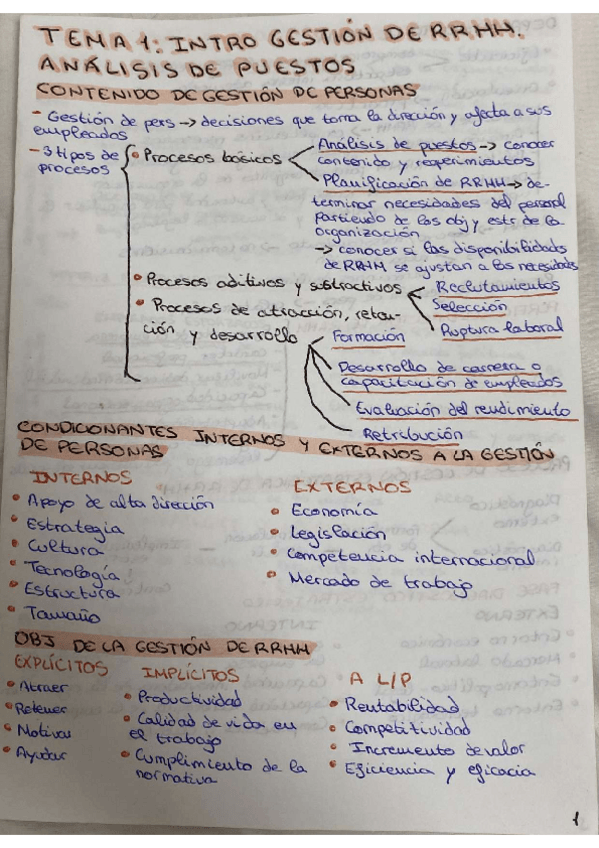 TEMA 1: INTRO GESTIÓN DE RRHH.
ANÁLISIS DE PUESTOS
CONTENIDO DE GESTIÓN DE PERSONAS
- Gestión de pers → decisiones que toma la dirección y afecta a sus
empleados
- 3 tipos de
procesos
• Procesos básicos
Análisis de puestos → conocer
contenido y requerimientos
Planificación de RRHH → de-
terminar necesidades del personal
partiendo de los obj y estr de la
organización
→ conocer si las disponibilidades
de RRHH se ajustan a las necesidades
• Procesos aditivos y substractivos
Reclutamientos
Selección
Ruptura laboral
• Procesos de atracción, reten-
ción y desarrollo
Formación
Desarrollo de carrera o
capacitación de empleados
Evaluación del rendimiento
Retribución
CONDICIONANTES INTERNOS Y EXTERNOS A LA GESTIÓN
DE PERSONAS
INTERNOS
• Apoyo de alta dirección
• Estrategia
• Cultura
• Tecnología
• Estructura
• Tamaño
EXTERNOS
• Economía
• Legislación
• Competencia internacional
• Mercado de trabajo
OBJ DE LA GESTIÓN DE RRHH
EXPLÍCITOS
• Atraer
• Retener
• Motivar
• Ayudar
IMPLÍCITOS
• Productividad
• Calidad de vida en
el trabajo
• Cumplimiento de la
normativa
A L/P
• Rentabilidad
• Competitividad
• Incremento de valor
• Eficiencia y eficacia
1